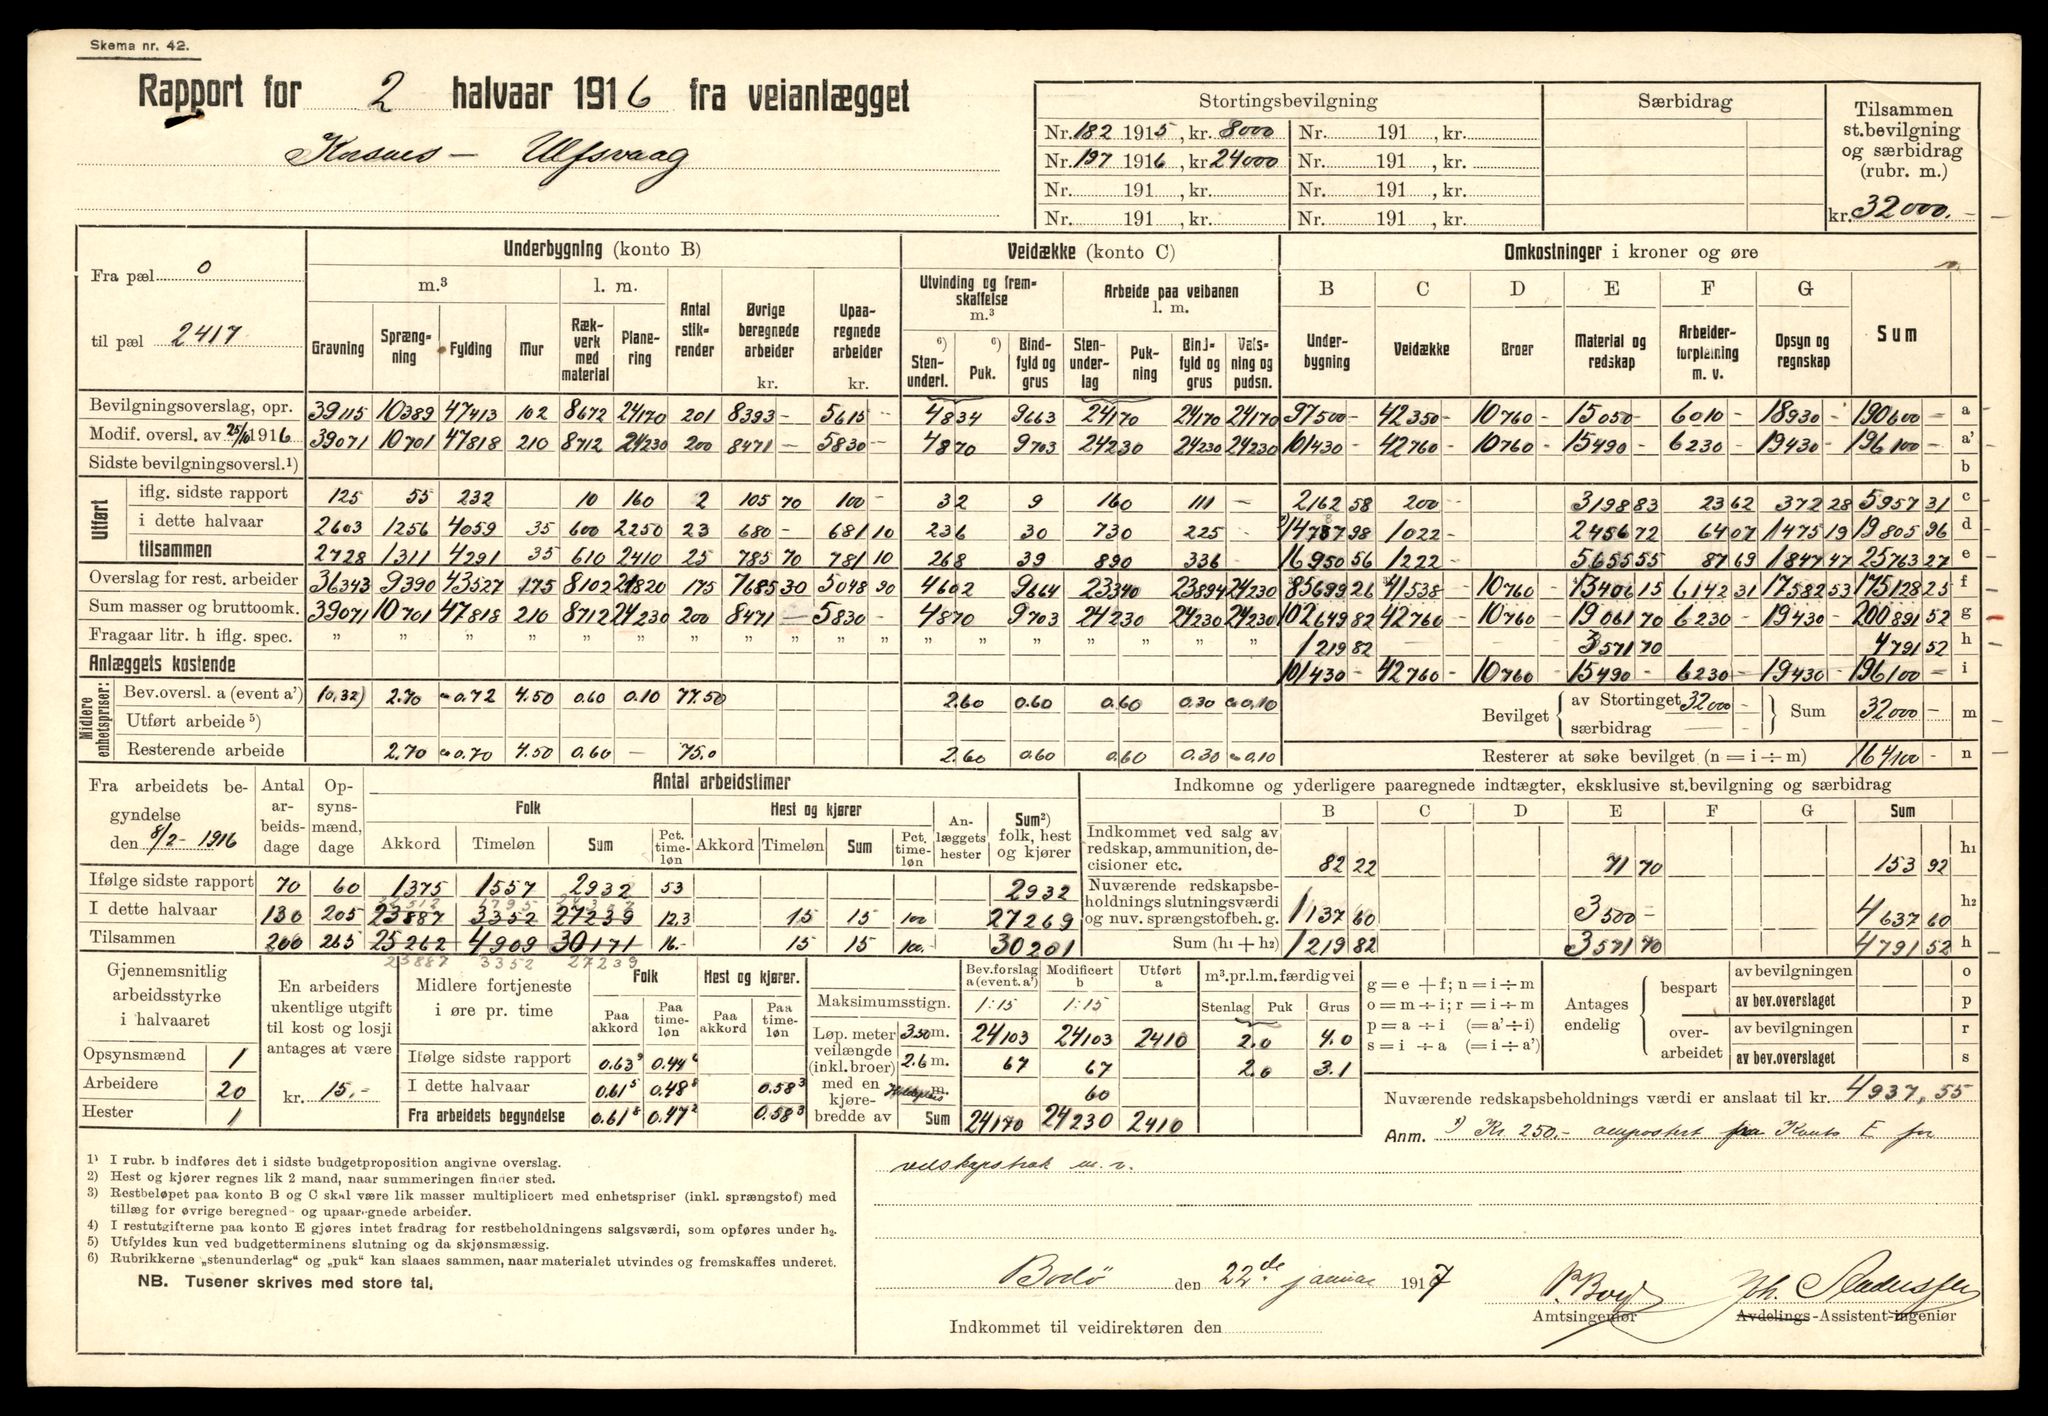 Skema nr. 42.
Rapport for 2 halvaar 1916 fra veianlægget
Korsnes – Ulfsvaag
Stortingsbevilgning Særbidrag Tilsammen st.bevilgning og særbidrag (rubr. m.)
Nr. 182 1915, kr. 8000 Nr. 191 , kr.
Nr. 197 1916, kr. 24000 Nr. 191 , kr.
Nr. 191 , kr. Nr. 191 , kr.
Nr. 191 , kr. Nr. 191 , kr. kr. 32000.-
Fra pæl 0
til pæl 2417
Underbygning (konto B) Veidække (konto C) Omkostninger i kroner og øre
m.³ l. m. Antal stikrender Øvrige beregnede arbeider kr. Upaaregnede arbeider kr. Utvinding og fremskaffelse m.³ Arbeide paa veibanen l. m. B C D E F G
Gravning Sprængning Fylding Mur Rækverk med material Planering 6) Stenunderl. 6) Puk. Bindfyld og grus Stenunderlag Pukning Bindfyld og grus Valsning og pudsn. Underbygning Veidække Broer Material og redskap Arbeiderforpleining m. v. Opsyn og regnskap Sum
Bevilgningsoverslag, opr. 39115 10389 47413 102 8672 24170 201 8393 – 5615 – 4834 9663 24170 24170 24170 97500 – 42350 – 10760 – 15050 – 6010 – 18930 – 190600 – a
Modif. oversl. av 25/10 1916 39071 10701 47818 210 8712 24230 200 8471 – 5830 – 4870 9703 24230 24230 24230 101430 – 42760 – 10760 – 15490 – 6230 – 19430 – 196100 – a'
Sidste bevilgningsoversl.¹) b
Utført
iflg. sidste rapport 125 55 232 10 160 2 105 70 100 – 32 9 160 111 – 2162 58 200 – 3198 83 23 62 372 28 5957 31 c
i dette halvaar 2603 1256 4059 35 600 2250 23 680 – 681 10 236 30 730 225 – 14787 98 1022 – 2456 72 64 07 1475 19 19805 96 d
tilsammen 2728 1311 4291 35 610 2410 25 785 70 781 10 268 39 890 336 – 16950 56 1222 – 5655 55 87 69 1847 47 25763 27 e
Overslag for rest. arbeider 36343 9390 43527 175 8102 21820 175 7685 30 5048 90 4602 9664 23340 23894 24230 85699 26 41538 – 10760 – 13406 15 6142 31 17582 53 175128 25 f
Sum masser og bruttoomk. 39071 10701 47818 210 8712 24230 200 8471 – 5830 – 4870 9703 24230 24230 24230 102649 82 42760 – 10760 – 19061 70 6230 – 19430 – 200891 52 g
Fragaar litr. h iflg. spec. " " " " " " " " " " " " " " " 1219 82 3571 70 4791 52 h
Anlæggets kostende 101430 – 42760 – 10760 – 15490 – 6230 – 19430 – 196100 – i
Midlere enhetspriser:
Bev.oversl. a (event a') (0,32) 2.70 0.72 4.50 0.60 0.10 77.50 2.60 0.60 0.60 0.30 0.10 Bevilget { av Stortinget 32000 – } Sum 32000 – m
Utført arbeide ⁵) særbidrag
Resterende arbeide 2.70 0.70 4.50 0.60 – 75.0 2.60 0.60 0.60 0.30 0.10 Resterer at søke bevilget (n = i ÷ m) 164100 – n
Fra arbeidets begyndelse den 8/2 - 1916
Antal arbeidsdage Opsynsmænd, dage Antal arbeidstimer
Folk Hest og kjører Anlæggets hester Sum²) folk, hest og kjører
Akkord Timeløn Sum Pct. timeløn Akkord Timeløn Sum Pct. timeløn
Ifølge sidste rapport 70 60 1375 1557 2932 53 2932
22512 1795 24307
I dette halvaar 130 205 23887 3352 27239 12.3 15 15 100 27269
Tilsammen 200 265 25262 4909 30171 16.- 15 15 100. 30201
23887 3352 27239
Indkomne og yderligere paaregnede indtægter, eksklusive st.bevilgning og særbidrag
B C D E F G Sum
Indkommet ved salg av redskap, ammunition, decisioner etc. 82 22 71 70 153 92 h1
Nuværende redskapsbeholdnings slutningsværdi og nuv. sprængstofbeh. g. 1137 60 3500 – 4637 60 h2
Sum (h1 + h2) 1219 82 3571 70 4791 52 h
Gjennemsnitlig arbeidsstyrke i halvaaret
Opsynsmænd 1
Arbeidere 20
Hester 1
En arbeiders ukentlige utgift til kost og losji antages at være
kr. 15.-
Midlere fortjeneste i øre pr. time Folk Hest og kjører.
Paa akkord Paa timeløn Paa akkord Paa timeløn
Ifølge sidste rapport 0.63⁹ 0.44⁶
I dette halvaar 0.61⁵ 0.48⁸ 0.58³
Fra arbeidets begyndelse 0.61⁸ 0.47² 0.58³
Bev.forslag a (event. a') Modificert b Utført a m³.pr.l.m.færdig vei
Maksimumsstign. 1:15 1:15 Stenlag Puk Grus
Løp. meter veilængde (inkl. broer) med en kjørebredde av
3.50 m. 24103 24103 2410 2.0 4.0
2.6 m. 67 67 2.0 3.1
m. 60
Sum 24170 24230 2410
g = e + f; n = i ÷ m
o = m ÷ i; r = i ÷ m
p = a ÷ i (= a' ÷ i)
s = i ÷ a (= i ÷ a')
Antages endelig
bespart av bevilgningen o
av bev.overslaget p
overarbeidet av bevilgningen r
av bev.overslaget s
Nuværende redskapsbeholdnings værdi er anslaat til kr. 4937,55
Anm. ¹) Kr. 250.- ompostert fra Konto E for
redskapstræk m.v.
1) I rubr. b indføres det i sidste budgetproposition angivne overslag.
2) Hest og kjører regnes lik 2 mand, naar summeringen finder sted.
3) Restbeløpet paa konto B og C skal være lik masser multiplicert med enhetspriser (inkl. sprængstof) med
tillæg for øvrige beregned- og upaaregnede arbeider.
4) I restutgifterne paa konto E gjøres intet fradrag for restbeholdningens salgsværdi, som opføres under h₂.
5) Utfyldes kun ved budgetterminens slutning og da skjønsmæssig.
6) Rubrikkerne „stenunderlag“ og „puk“ kan slaaes sammen, naar materialet utvindes og fremskaffes underet.
NB. Tusener skrives med store tal.
Bodø den 22de januar 1917
Amtsingeniør Avdelings-Assistent-ingeniør
Indkommet til veidirektøren den